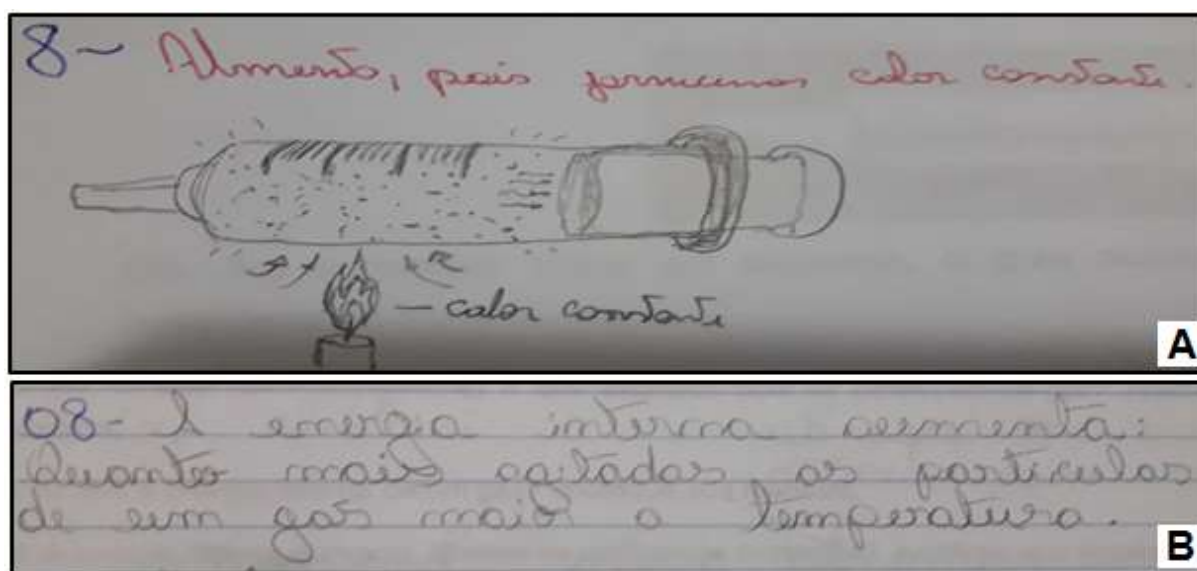 8- Almento, pois fornecemos calor constante.
calor constante
A
08- A energia interna aumenta:
Quanto mais agitadas as particulas
de um gás maior a temperatura.
B